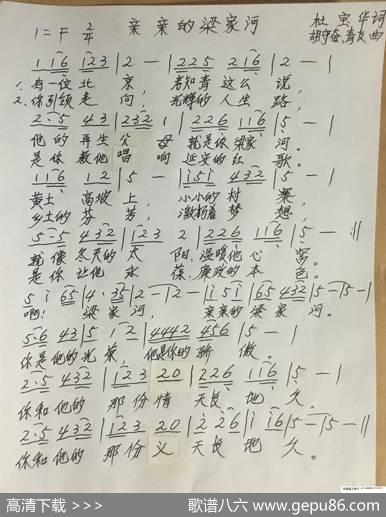 1=F 2/4 亲亲的梁家河 杜宝华词
胡宇奋 青文曲
116 123 | 2 — | 225 216 | 2 — |
1. 有一位北京,老知青这么说,
2. 你引领走向,光辉的人生路,
2·5 43 | 232 1 | 226 116 | 5 — |
他的再生父母就是你梁家河。
是你教他唱响延安的红歌。
116 12 | 5 — | 151 432 | 5 — |
黄土高坡上,小小的村寨,
乡土的芬芳,激扬着梦想,
5·5 432 | 123 2 | 226 116 | 5 — :||
就像冬天的太阳温暖他心窝。
是你让他永葆廉政的本色。
5 i 65 | 4·35 | 2 — | 2 — | 151 | 65 432 | 5 — | 5 — |
啊!梁家河,亲亲的梁家河。
5·6 43 | 5 12 | 4442 456 | 5 — |
你是他的光荣,他是你的骄傲。
2·5 432 | 123 20 | 226 116 | 5 — |
你和他的那份情天长地久。
2·5 432 | 123 20 | 2 26 | 1 16 | 5 — | 5 — ||
你和他的那份义天长地久。
高清下载 >>>
歌谱八六 www.gepu86.com